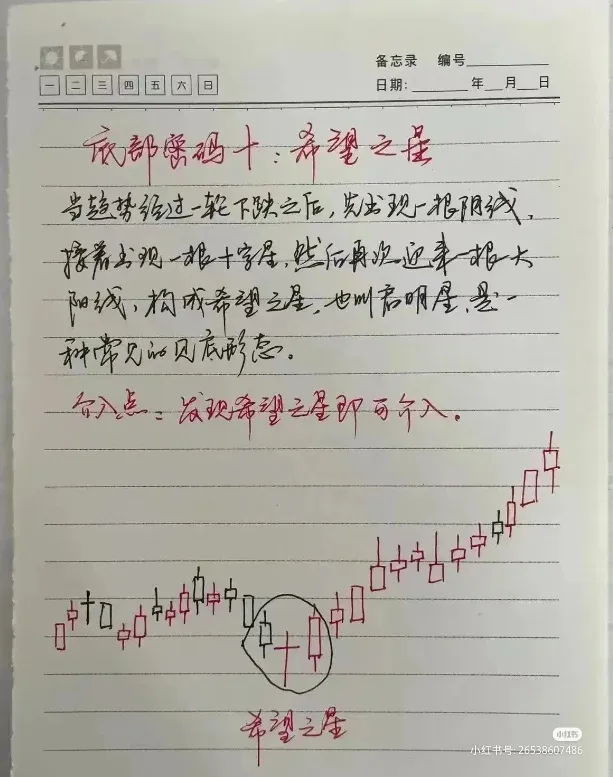 备忘录 编号
一 二 三 四 五 六 日
日期: 年 月 日
底部密码十:希望之星
当趋势经过一轮下跌之后,先出现一根阴线,
接着出现一根十字星,然后再次迎来一根大
阳线,构成希望之星,也叫启明星,是一
种常见的见底形态。
介入点:发现希望之星即可介入。
希望之星
小红书
小红书号:26538607486